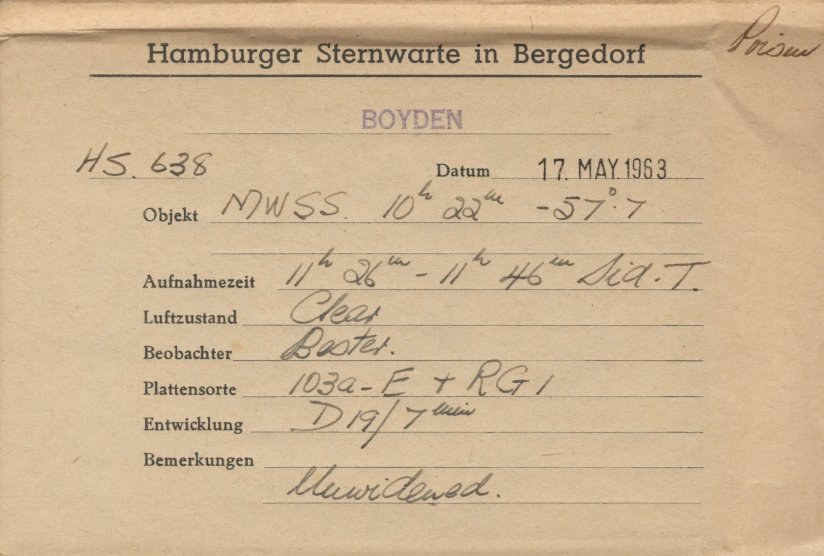 Hamburger Sternwarte in Bergedorf
BOYDEN
HS. 638
Datum 17. MAY. 1963
Objekt MWSS. 10h 22m -57°.7
Aufnahmezeit 11h 26m - 11h 46m Sid. T.
Luftzustand Clear
Beobachter Bester.
Plattensorte 103a-E + RG1
Entwicklung D19/7min
Bemerkungen
Unwidened.